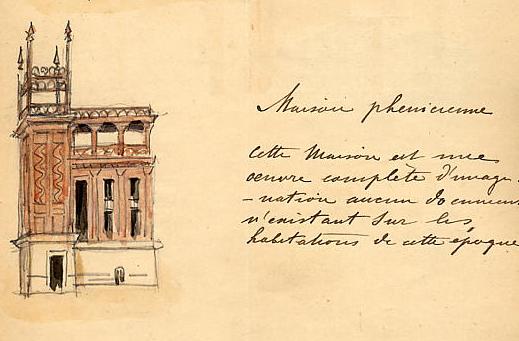 Maison phenicienne
Cette Maison est une
œuvre complète d'imagi-
-nation aucun document
n'existant sur les
habitations de cette époque